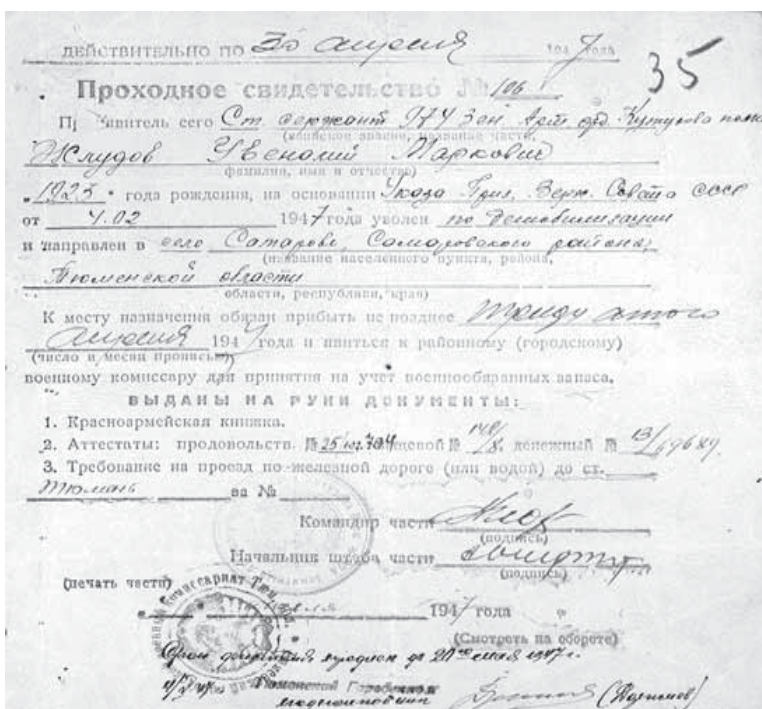 ДЕЙСТВИТЕЛЬНО ПО 30 апреля 1947 года
35
Проходное свидетельство № 106
Пр явитель сего Ст. сержант 974 Зен. Арт. орд. Кутузова полка
(воинское звание, название части,
Жлудов Увеналий Маркович
фамилия, имя и отчество)
„1923" года рождения, на основании Указа През. Верх. Совета СССР
от 4.02 1947 года уволен по демобилизации
и направлен в село Самарово, Самаровского района,
(название населенного пункта, района,
Тюменской области
области, республики, края)
К месту назначения обязан прибыть не позднее тридцатого
апреля 1947 года и явиться к районному (городскому)
(число и месяц прописью)
военному комиссару для принятия на учет военнообязанных запаса.
ВЫДАНЫ НА РУКИ ДОКУМЕНТЫ:
1. Красноармейская книжка.
2. Аттестаты: продовольств. № вещевой № денежный №
3. Требование на проезд по железной дороге (или водой) до ст.
Тюмень за №
Командир части
(подпись)
Начальник штаба части
(подпись)
(печать части)
1947 года
(Смотреть на обороте)
Срок действия продлен до 20го мая 1947 г.
Тюменский Горвоенком